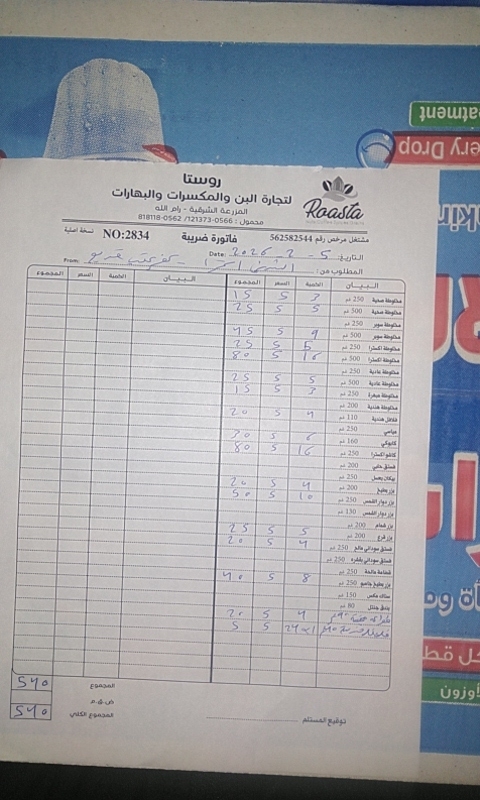 atment
ery Drop
روستا
لتجارة البن والمكسرات والبهارات
المزرعة الشرقية - رام الله
محمول : 0566-121373/ 0562-818118
Roasta
مشتغل مرخص رقم 562582544
فاتورة ضريبة
NO:2834
نسخة اصلية
التاريخ: Date: 2026 - 2 - 5
المطلوب من: From:
البيــــان الكمية السعر المجموع البيــــان الكمية السعر المجموع
مخلوطة صحية 250 غم 3 5 15
مخلوطة صحية 500 غم 5 5 25
مخلوطة سوبر 250 غم
مخلوطة سوبر 500 غم 9 5 45
مخلوطة اكسترا 250 غم 5 5 25
مخلوطة اكسترا 500 غم 16 5 80
مخلوطة عادية 250 غم
مخلوطة عادية 500 غم 5 5 25
مخلوطة مبهرة 250 غم 3 5 15
مخلوطة هندية 200 غم
فلافل هندية 110 غم 4 5 20
250 غم
160 غم 6 5 30
كاشو اكسترا 250 غم 16 5 80
فستق حلبي 200 غم
250 غم
بزر بطيخ 200 غم 4 5 20
بزر دوار الشمس 250 غم 10 5 50
بزر دوار الشمس 130 غم
بزر شمام 200 غم
بزر قرع 200 غم 5 5 25
فستق سوداني مالح 250 غم 4 5 20
فستق سوداني بقشره 250 غم
قضامة مالحة 250 غم
بزر بطيخ 250 غم 8 5 40
150 غم
80 غم
4 5 20
5 5
المجموع 540
ض.ق.م
المجموع الكلي 540
توقيع المستلم
كل قط
أوزون